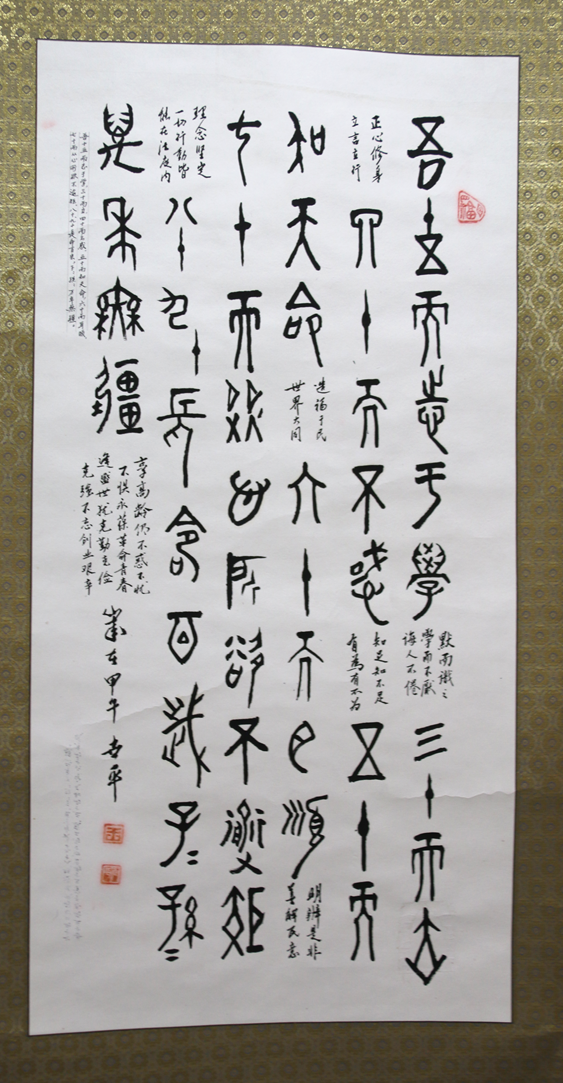 吾十五而志于學
默而識之
學而不厭
誨人不倦
三十而立
正心修身
立言立行
四十而不惑
知足知不足
有為有不为
五十而
知天命
造福于民
世界大同
六十而耳順
明辨是非
善解民意
七十而從心所欲不逾矩
理念堅定
一切行動皆
能在法度内
八十九十命百子孫
年無疆
享高齡仍不惑不
不惧永葆革命青春
逢盛世犹克勤克儉
克強不忘創业艰辛
歲在甲午平